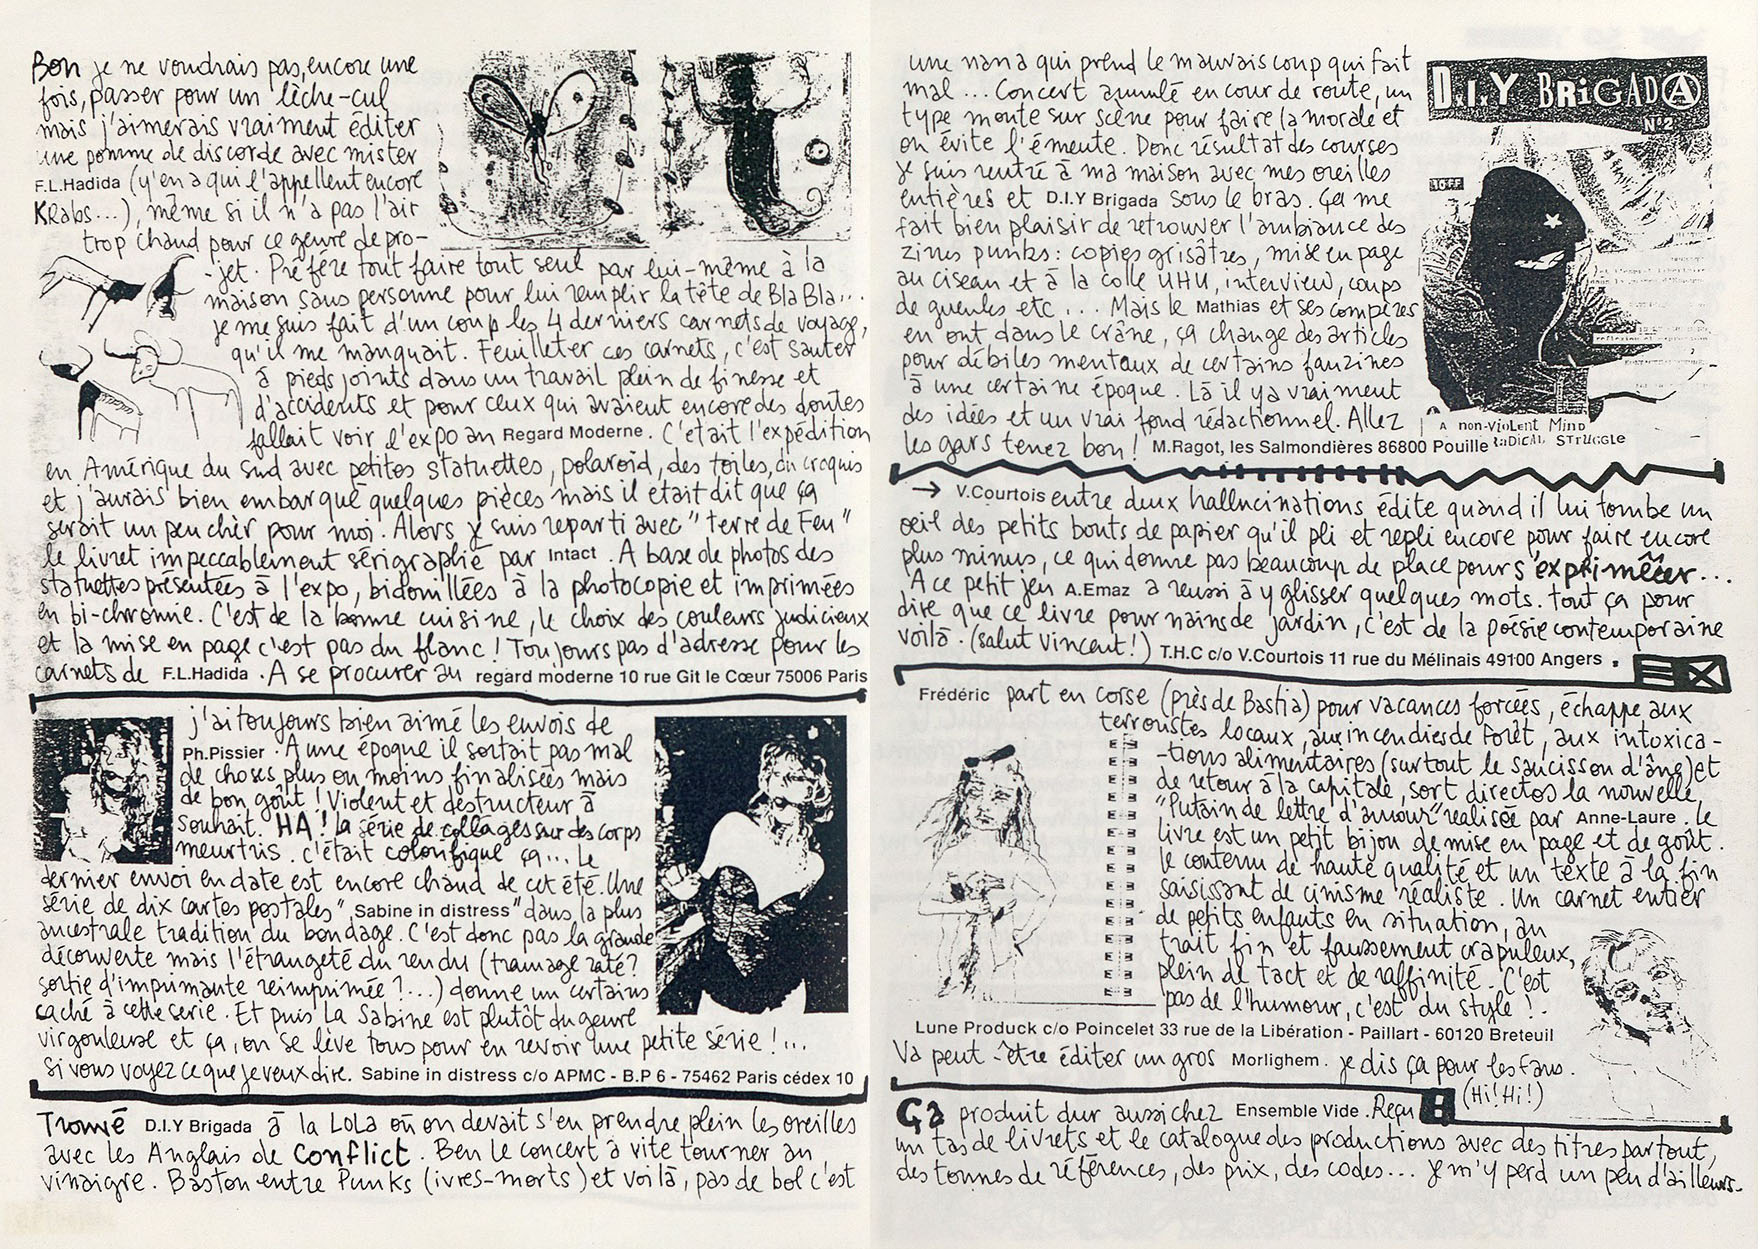 Bon je ne voudrais pas, encore une
fois, passer pour un lèche-cul
mais j'aimerais vraiment éditer
une pomme de discorde avec mister
F.L.Hadida (y'en a qui l'appellent encore
KRabs...), même si il n'a pas l'air
trop chaud pour ce genre de pro-
-jet. Préfère tout faire tout seul par lui-même à la
maison sans personne pour lui remplir la tête de Bla Bla...
je me suis fait d'un coup les 4 derniers carnets de voyage,
qu'il me manquait. Feuilleter ces carnets, c'est sauter
à pieds joints dans un travail plein de finesse et
d'accidents et pour ceux qui avaient encore des doutes
fallait voir l'expo au Regard Moderne. C'était l'expédition
en Amérique du Sud avec petites statuettes, polaroïd, des toiles, du croquis
et j'aurais bien embarqué quelques pièces mais il était dit que ça
serait un peu chèr pour moi. Alors je suis reparti avec "Terre de Feu"
le livret impeccablement sérigraphié par Intact. A base de photos des
statuettes présentées à l'expo, bidouillées à la photocopie et imprimées
en bi-chromie. C'est de la bonne cuisine, le choix des couleurs judicieux
et la mise en page c'est pas du flanc! Toujours pas d'adresse pour les
carnets de F.L.Hadida. A se procurer au regard moderne 10 rue Git le Cœur 75006 Paris
j'ai toujours bien aimé les envois de
Ph.Pissier. A une époque il sortait pas mal
de choses plus ou moins finalisées mais
de bon goût! Violent et destructeur à
souhait. HA! la série de collages sur des corps
meurtris. c'était colorifique ça... Le
dernier envoi en date est encore chaud de cet été. Une
série de dix cartes postales "Sabine in distress" dans la plus
ancestrale tradition du bondage. C'est donc pas la grande
découverte mais l'étrangeté du rendu (tramage raté?
sortie d'imprimante réimprimée?...) donne un certains
caché à cette serie. Et puis la Sabine est plutôt du genre
virgouleuse et ça, on se lève tous pour en revoir une petite série!...
Si vous voyez ce que je veux dire. Sabine in distress c/o APMC - B.P 6 - 75462 Paris cédex 10
Trouvé D.I.Y Brigada à la LOLA où on devait s'en prendre plein les oreilles
avec les Anglais de Conflict. Ben le concert à vite tourner au
vinaigre. Baston entre Punks (ivres-morts) et voilà, pas de bol c'est
une nana qui prend le mauvais coup qui fait
mal... Concert annulé en cour de route, un
type monte sur scène pour faire la morale et
on évite l'émeute. Donc résultat des courses
je suis rentré à ma maison avec mes oreilles
entières et D.I.Y Brigada sous le bras. Ça me
fait bien plaisir de retrouver l'ambiance des
zines punks: copies grisâtres, mise en page
au ciseau et à la colle UHU, interview, coups
de gueules etc... Mais le Mathias et ses compères
en ont dans le crâne, ça change des articles
pour débiles mentaux de certains fanzines
à une certaine époque. Là il y a vraiment
des idées et un vrai fond rédactionnel. Allez
les gars tenez bon! M.Ragot, les Salmondières 86800 Pouille
D.I.Y BRIGADA
N°2
10FF
A non-violent Mind
RADICAL STRUGGLE
→ V.Courtois entre deux hallucinations édite quand il lui tombe un
oeil des petits bouts de papier qu'il pli et repli encore pour faire encore
plus minus, ce qui donne pas beaucoup de place pour s'exprimêêer...
A ce petit jeu A.Emaz a reussi à y glisser quelques mots. tout ça pour
dire que ce livre pour nains de jardin, c'est de la poésie contemporaine
voilà. (salut Vincent!) T.H.C c/o V.Courtois 11 rue du Mélinais 49100 Angers.
Frédéric part en corse (près de Bastia) pour vacances forcées, échappe aux
terroristes locaux, aux incendies de Forêt, aux intoxica-
-tions alimentaires (surtout le saucisson d'âne) et
de retour à la capitale, sort directos la nouvelle,
"Putain de lettre d'amour" réalisée par Anne-Laure. Le
livre est un petit bijou de mise en page et de goût.
le contenu de haute qualité et un texte à la fin
saisissant de cinisme réaliste. Un carnet entier
de petits enfants en situation, au
trait fin et faussement crapuleux,
plein de tact et de raffinité. C'est
pas de l'humour, c'est du style!-
Lune Produck c/o Poincelet 33 rue de la Libération - Paillart - 60120 Breteuil
Va peut-être éditer un gros Morlighem. je dis ça pour les fans.
(Hi! Hi!)
Ça produit dur aussi chez Ensemble Vide. Reçu
un tas de livrets et le catalogue des productions avec des titres partout,
des tonnes de références, des prix, des codes... Je m'y perd un peu d'ailleurs-